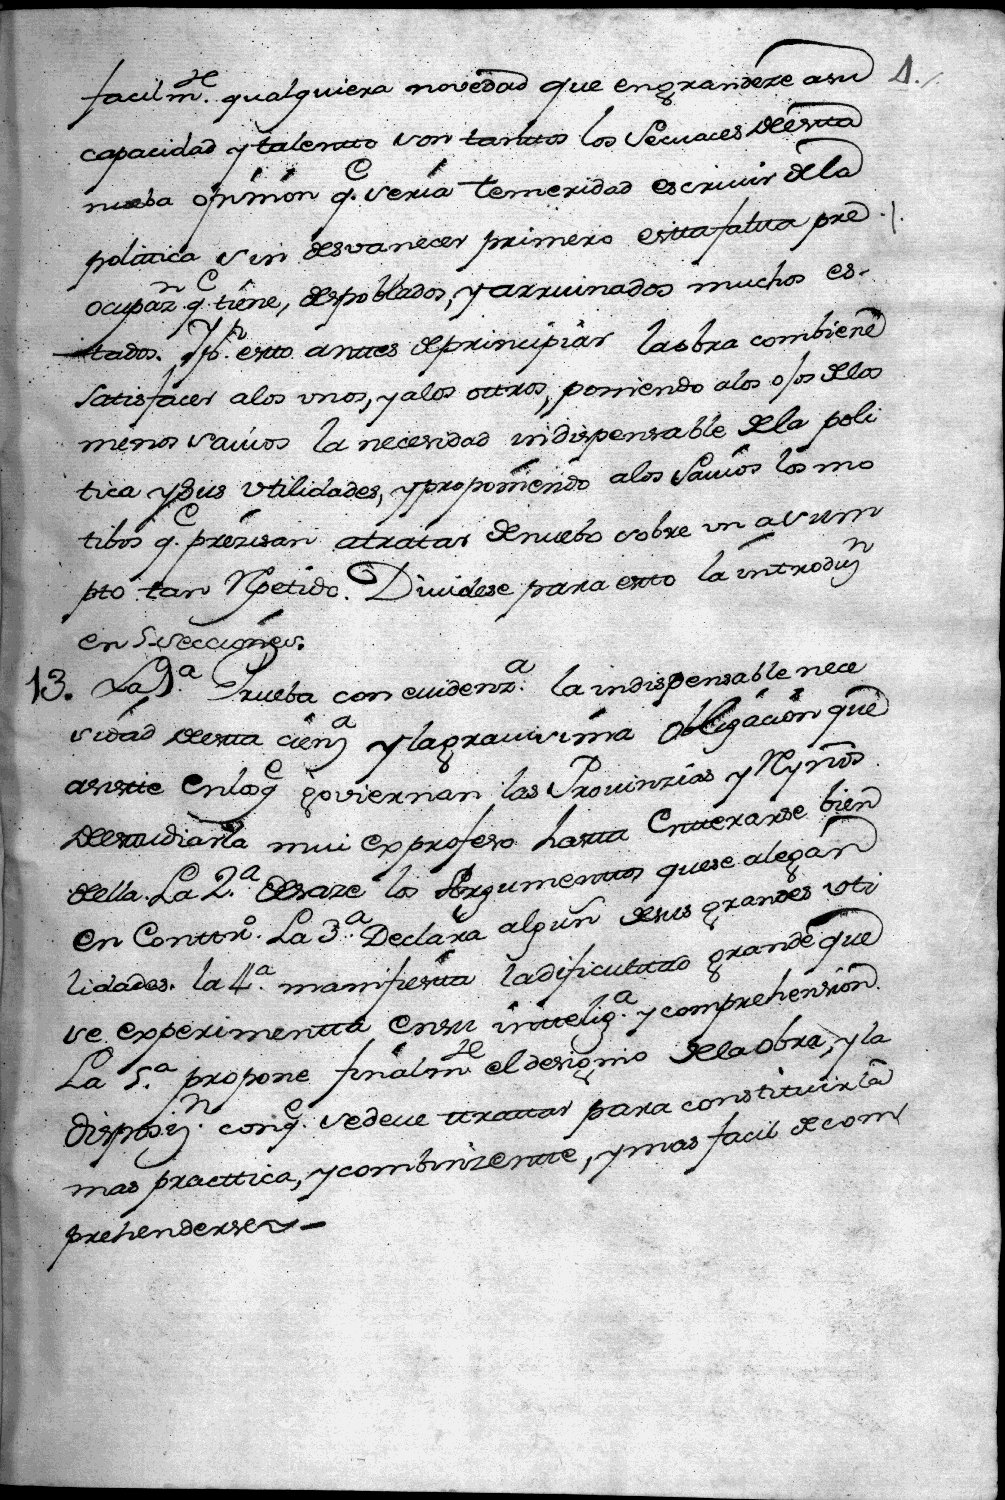 facilm.te qualquiera novedad que engrandeze asu 4./
capacidad y talentto son tanttos los Secuaces deestta
nueba opinion q.e seria temeridad escriuir dela
polittica sin desvanecer primero estta faltta pre
ocupaz.n q.e tiene, despoblados, y arruinados muchos es-
tados. Y p.r estto anttes deprincipiar laobra combiene
satisfacer alos vnos, y alos ottros, poniendo alos ojos delos
menos sauios la necesidad indispensable dela poli
tica y sus vtilidades, y proponiendo alos Sauios los mo
tibos q.e precisan atratar denuebo sobre un asum
pto tan Repetido. Diuidese para estto la introduz.n
en 5 secciones.
13. La 1.a Prueba con euidenz.a la indispensable nece
sidad destta cienz.a y la grauisima obligacion que
asistte enlosq.e goviernan las Prouinzias y Reynos
deestudiarla mui exprofeso hastta Entterarse bien
della. La 2.a desaze los Argumenttos quese alegan
en Conttr.o. La 3.a Declara algun desus grandes vti
lidades. la 4.a manifiestta ladificulttad grande que
se experimentta ensu inttelig.a y comprehension.
La 5.a propone finalm.te el designio dela obra, y la
disposiz.n conq.e sedeue ttrattar para constituirla
mas practtica, y combinientte, y mas facil decom
prehenderse